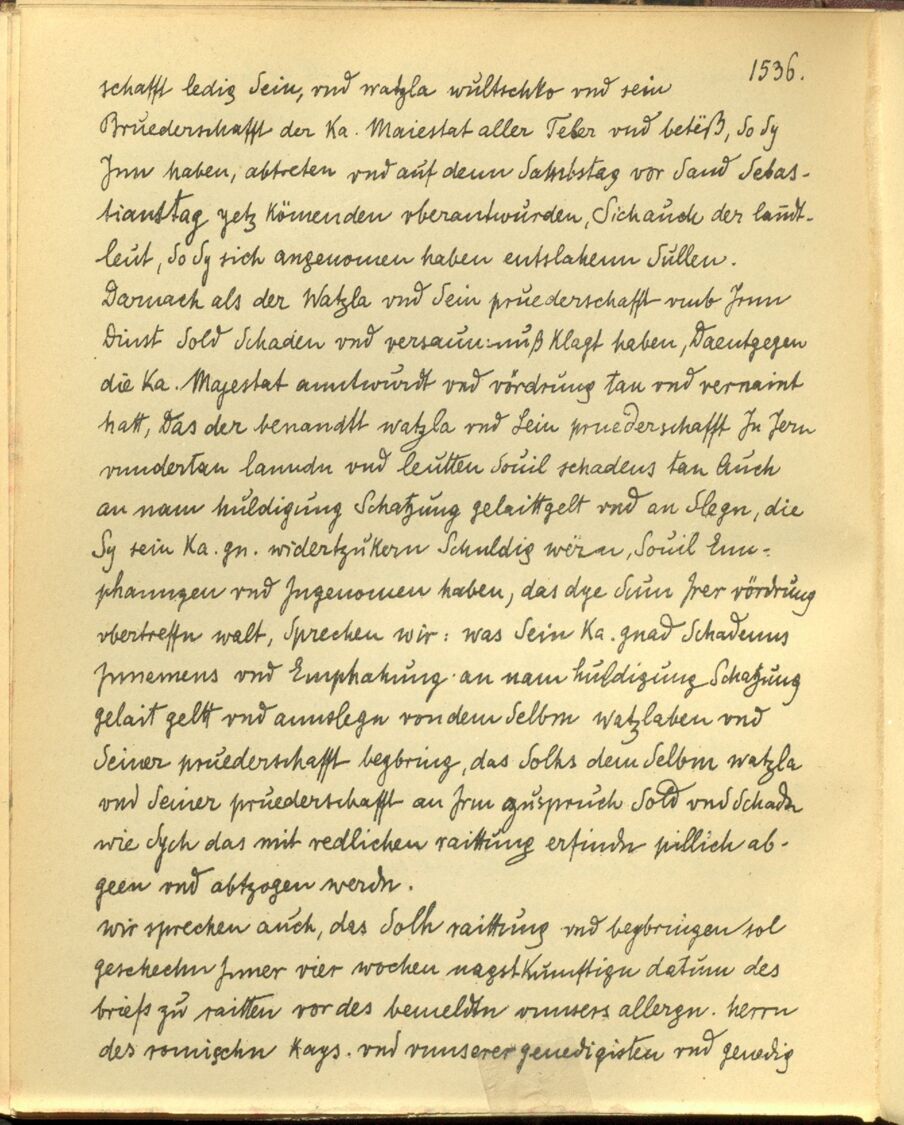 1536.
schafft ledig Sein, vnd watzla wultschko vnd sein
Bruederschafft der Ka. Maiestat aller Teber vnd beteß, So Sy
Jnn haben, abtreten vnd auf denn Sambstag vor Sand Sebas-
tianstag yetz kömenden vberantwurden, Sich auch der landt-
leut, So Sy sich angenomen haben entslahenn Sullen.
Darnach als der Watzla vnd Sein pruederschafft vmb Jrnn
Dinst Sold Schaden vnd versaumnuß klagt haben, Daentgegen
die Ka. Majestat anntwurdt vnd vördrung tan vnd vermaint
hatt, Das der benandtt watzla vnd Sein pruederschafft Jn Jern
vnndertan lanndn vnd leutten Souil schadens tan Auch
an nam huldigung Schatzung gelaittgelt vnd an Slegn, die
Sy sein Ka. gn. widertzukern Schuldig wern, Souil Emn-
phanngen vnd Jngenomen haben, das dye Sum Jrer vördrung
vbertreffn walt, Sprechen wir: was Sein Ka. gnad Schadenns
Jnnemens vnd Emphahung an nam huldigung Schatzung
gelait geltt vnd annslegn von dem Selbm watzlaben vnd
Seiner pruederschafft beybring, das Solhs dem Selbm watzla
vnd Seiner pruederschafft an Jrm zuspruch Sold vnd Schadn
wie Sych das mit redlichen raittung erfindn pillich ab-
geen vnd abtzogen werdn.
Wir sprechen auch, das Solh raittung vnd beybringen sol
geschechn Jnner vier wochen nagstkunftign datum des
briefs zu raitten vor des bemeldtn vnnsers allergn. herrn
des romischn Kays. vnd vnnserer genedigisten vnd genedig